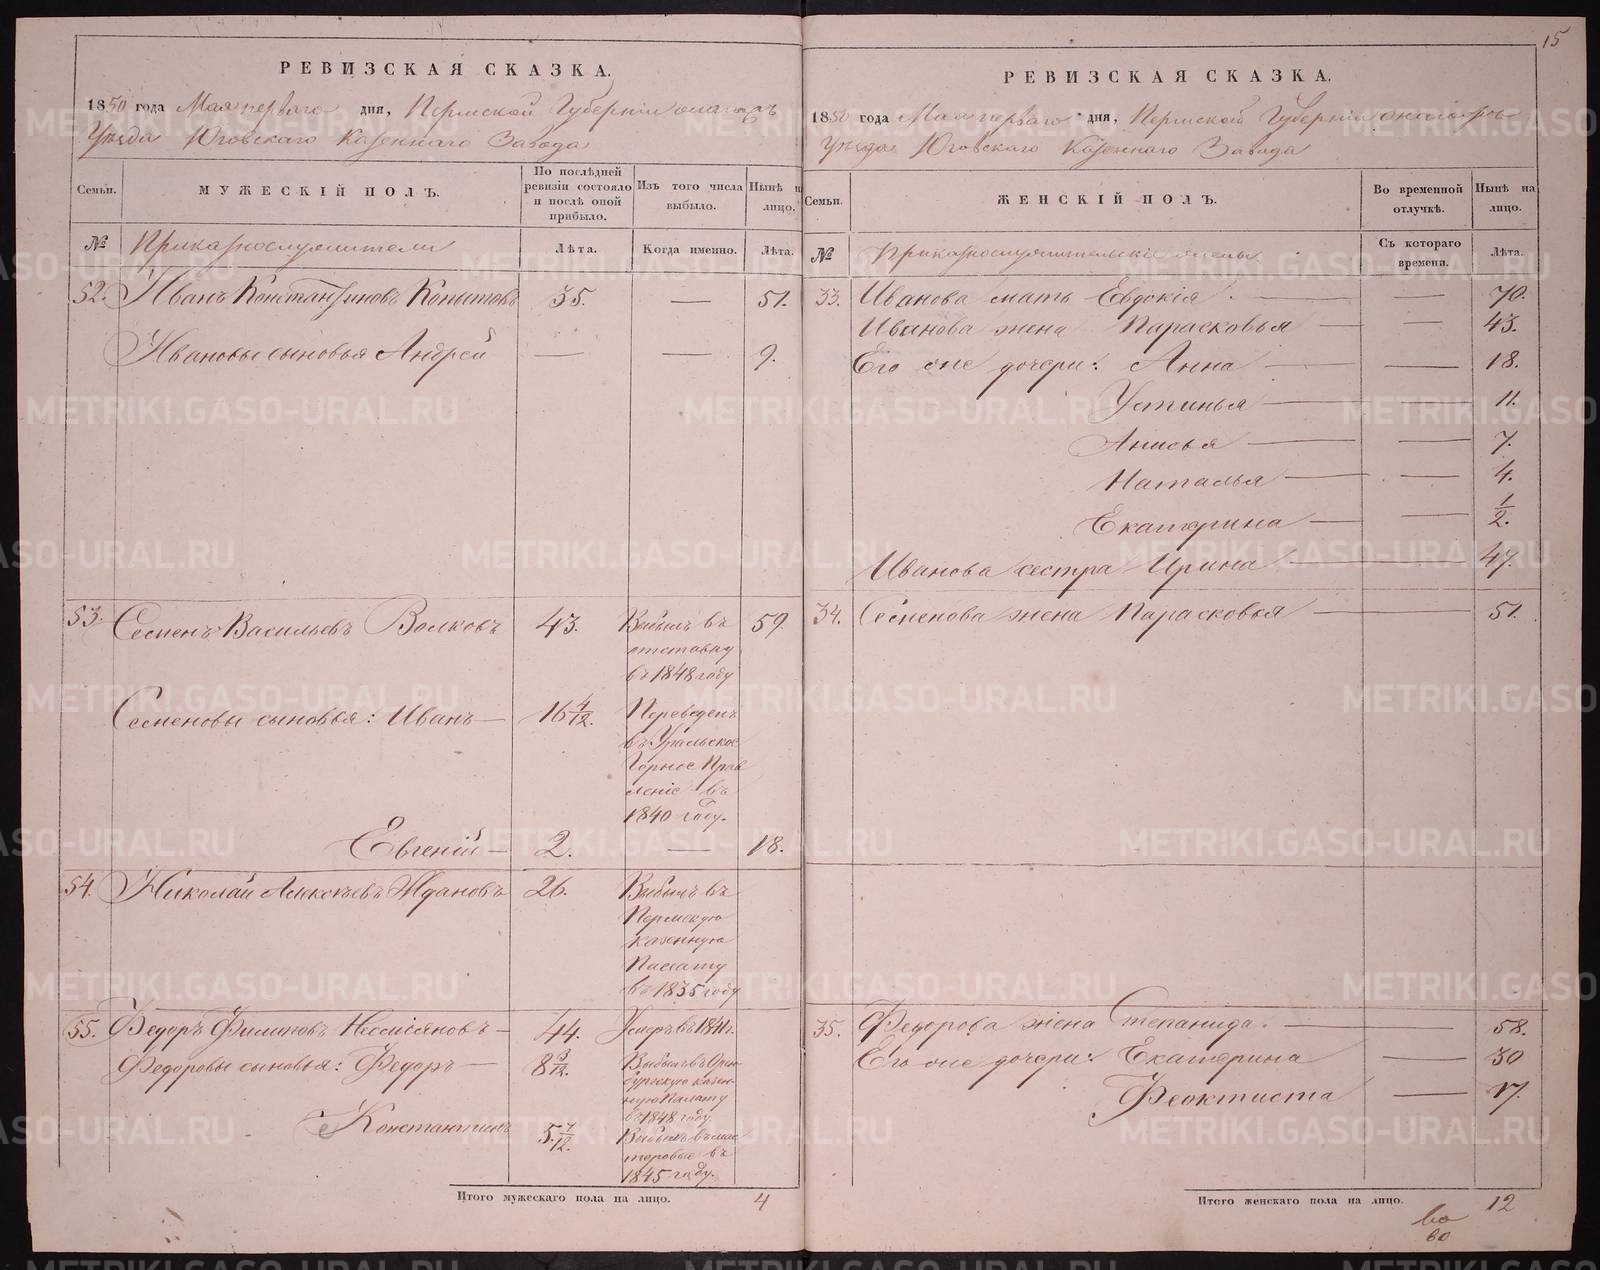 15
РЕВИЗСКАЯ СКАЗКА.
1850 года Мая перваго дня, Пермской Губернiи
Уѣзда Юговскаго Казеннаго Завода
Семьи.
МУЖЕСКIЙ ПОЛЪ.
По послѣдней ревизiи состояло и послѣ оной прибыло.
Изъ того числа выбыло.
Нынѣ н лицо.
№
Приказнослужители
Лѣта.
Когда именно.
Лѣта.
52. Иванъ Константиновъ Копытовъ 35. — 51.
Ивановы сыновья Андрей — — 9.
53. Семенъ Васильевъ Волковъ 43. Выбылъ въ 59.
отставку
въ 1848 году
Семеновы сыновья: Иванъ — 16 4/12. Переведенъ
въ Уральское
Горное Прав
ленiе въ
1840 году.
Евгенiй — 2. — 18.
54. Николай Алексѣевъ Ждановъ 26. Выбылъ въ
Пермскую
казенную
Палату
въ 1835 году
55. Федоръ Филиповъ — 44. Умеръ въ 1841 г.
Федоровы сыновья: Федоръ — 8 3/12. Выбылъ въ Орен
бургскую казен-
ную Палату
въ 1848 году.
Константинъ 5 7/12. Выбылъ въ мас
теровые въ
1845 году.
Итого мужескаго пола на лицо. 4
РЕВИЗСКАЯ СКАЗКА.
1850 года Мая перваго дня, Пермской Губернiи
Уѣзда Юговскаго Казеннаго Завода
Семьи.
ЖЕНСКIЙ ПОЛЪ.
Во временной отлучкѣ.
Нынѣ на лицо.
№
Приказнослужительскiе жены
Съ котораго времени.
Лѣта.
33. Иванова мать Евдокiя — — 70.
Иванова жена Парасковья — — 43.
Его же дочери: Анна — — 18.
Устинья — — 11.
Анисья — — 7.
Наталья — — 4.
Екатерина — — 1/2.
Иванова сестра Ирина — 47.
34. Семенова жена Парасковья — 51.
35. Федорова жена Степанида. — 58.
Его же дочери: Екатерина — 30
Феоктиста — 17.
Итого женскаго пола на лицо. 12
METRIKI.GASO-URAL.RU